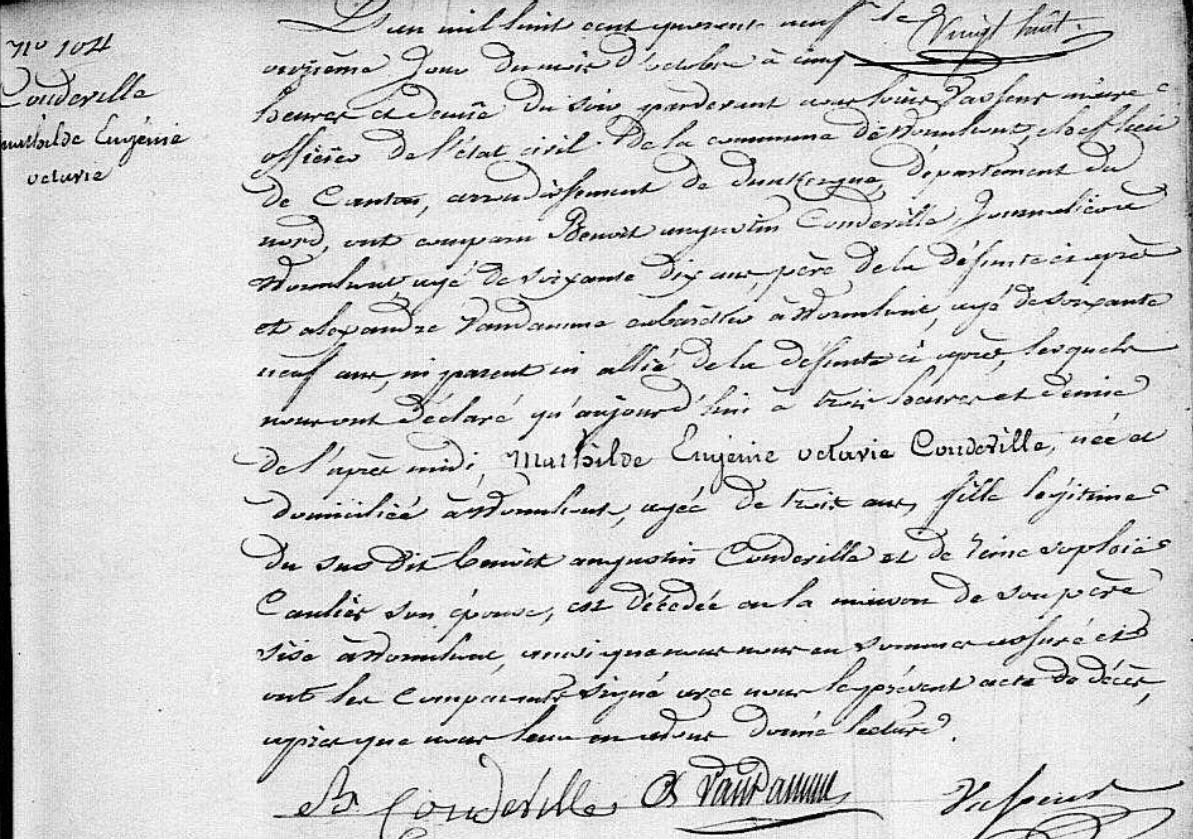 No 104
Couderville
Mathilde Eugénie
octavie
L'an mil huit cent quarante neuf le Vingt huit.
onzième Jour du mois d'octobre à cinq
heures et demie du soir pardevant nous Vasseur maire
officier de l'état civil de la commune de Wormhout, chef lieu
de Canton, arrondissement de dunkerque, département du
nord, ont comparu Benoit augustin Couderville, Journalier à
Wormhout, agé de soixante dix ans, père de la défunte ci après
et alexandre Vandamme cabaretier à Wormhout, agé de soixante
neuf ans, ni parent ni allié de la défunte ci après, lesquels
nous ont déclaré qu'aujourd'hui à trois heures et demie
de l'après midi, Mathilde Eugénie octavie Couderville, née et
domiciliée à Wormhout, agée de trois ans, fille légitime
du sus dit benoit augustin Couderville et de
Caulier son épouse, est décédée en la maison de son père
sise à Wormhout, ainsi que nous nous en sommes assuré et
ont les Comparants signé avec nous le présent acte de décès,
après que nous leur en avons donné lecture.
Couderville Vandamme Vasseur